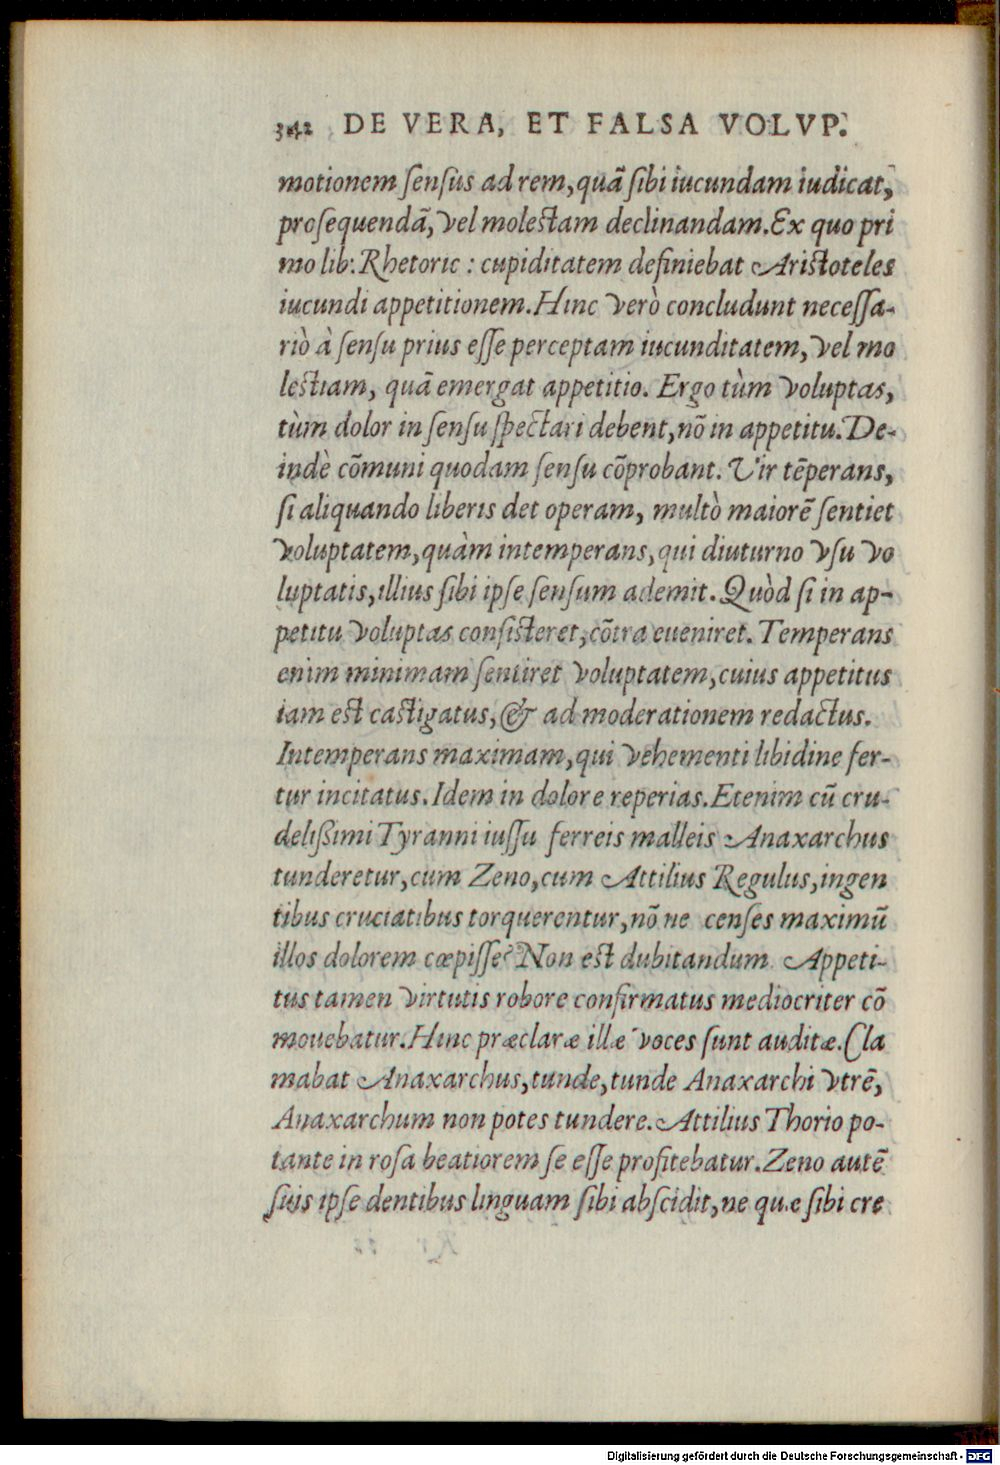 342 DE VERA, ET FALSA VOLVP.
motionem sensus ad rem, quã sibi iucundam iudicat,
prosequendã, vel molestam declinandam. Ex quo pri
mo lib: Rhetoric : cupiditatem definiebat Aristoteles
iucundi appetitionem. Hinc verò concludunt necessa-
riò à sensu prius esse perceptam iucunditatem, vel mo
lestiam, quã emergat appetitio. Ergo tùm voluptas,
tùm dolor in sensu spectari debent, nõ in appetitu. De-
indè cõmuni quodam sensu cõprobant. Vir tẽperans,
si aliquando liberis det operam, multò maiorẽ sentiet
voluptatem, quàm intemperans, qui diuturno vsu vo
luptatis, illius sibi ipse sensum ademit. Quòd si in ap-
petitu voluptas consisteret, cõtra eueniret. Temperans
enim minimam sentiret voluptatem, cuius appetitus
iam est castigatus, & ad moderationem redactus.
Intemperans maximam, qui vehementi libidine fer-
tur incitatus. Idem in dolore reperias. Etenim cũ cru-
delißimi Tyranni iussu ferreis malleis Anaxarchus
tunderetur, cum Zeno, cum Attilius Regulus, ingen
tibus cruciatibus torquerentur, nõ ne censes maximũ
illos dolorem cœpisse? Non est dubitandum. Appeti-
tus tamen virtutis robore confirmatus mediocriter cõ
mouebatur. Hinc præclaræ illæ voces sunt auditæ. Cla
mabat Anaxarchus, tunde, tunde Anaxarchi vtrẽ,
Anaxarchum non potes tundere. Attilius Thorio po-
tante in rosa beatiorem se esse profitebatur. Zeno autẽ
suis ipse dentibus linguam sibi abscidit, ne quæ sibi cre
Digitalisierung gefördert durch die Deutsche Forschungsgemeinschaft - DFG